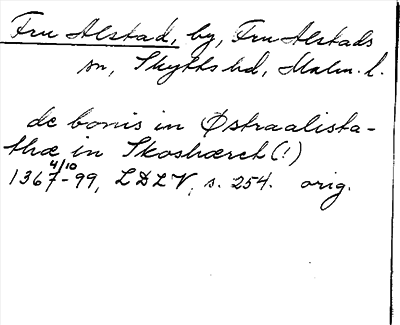 Fru Alstad, by, Fru Alstads
sn, Skytts hd, Malm. l.
de bonis in Østraalista-
thæ in Skoshæret (!)
1367 4/10 -99, LDLV, s. 254. orig.